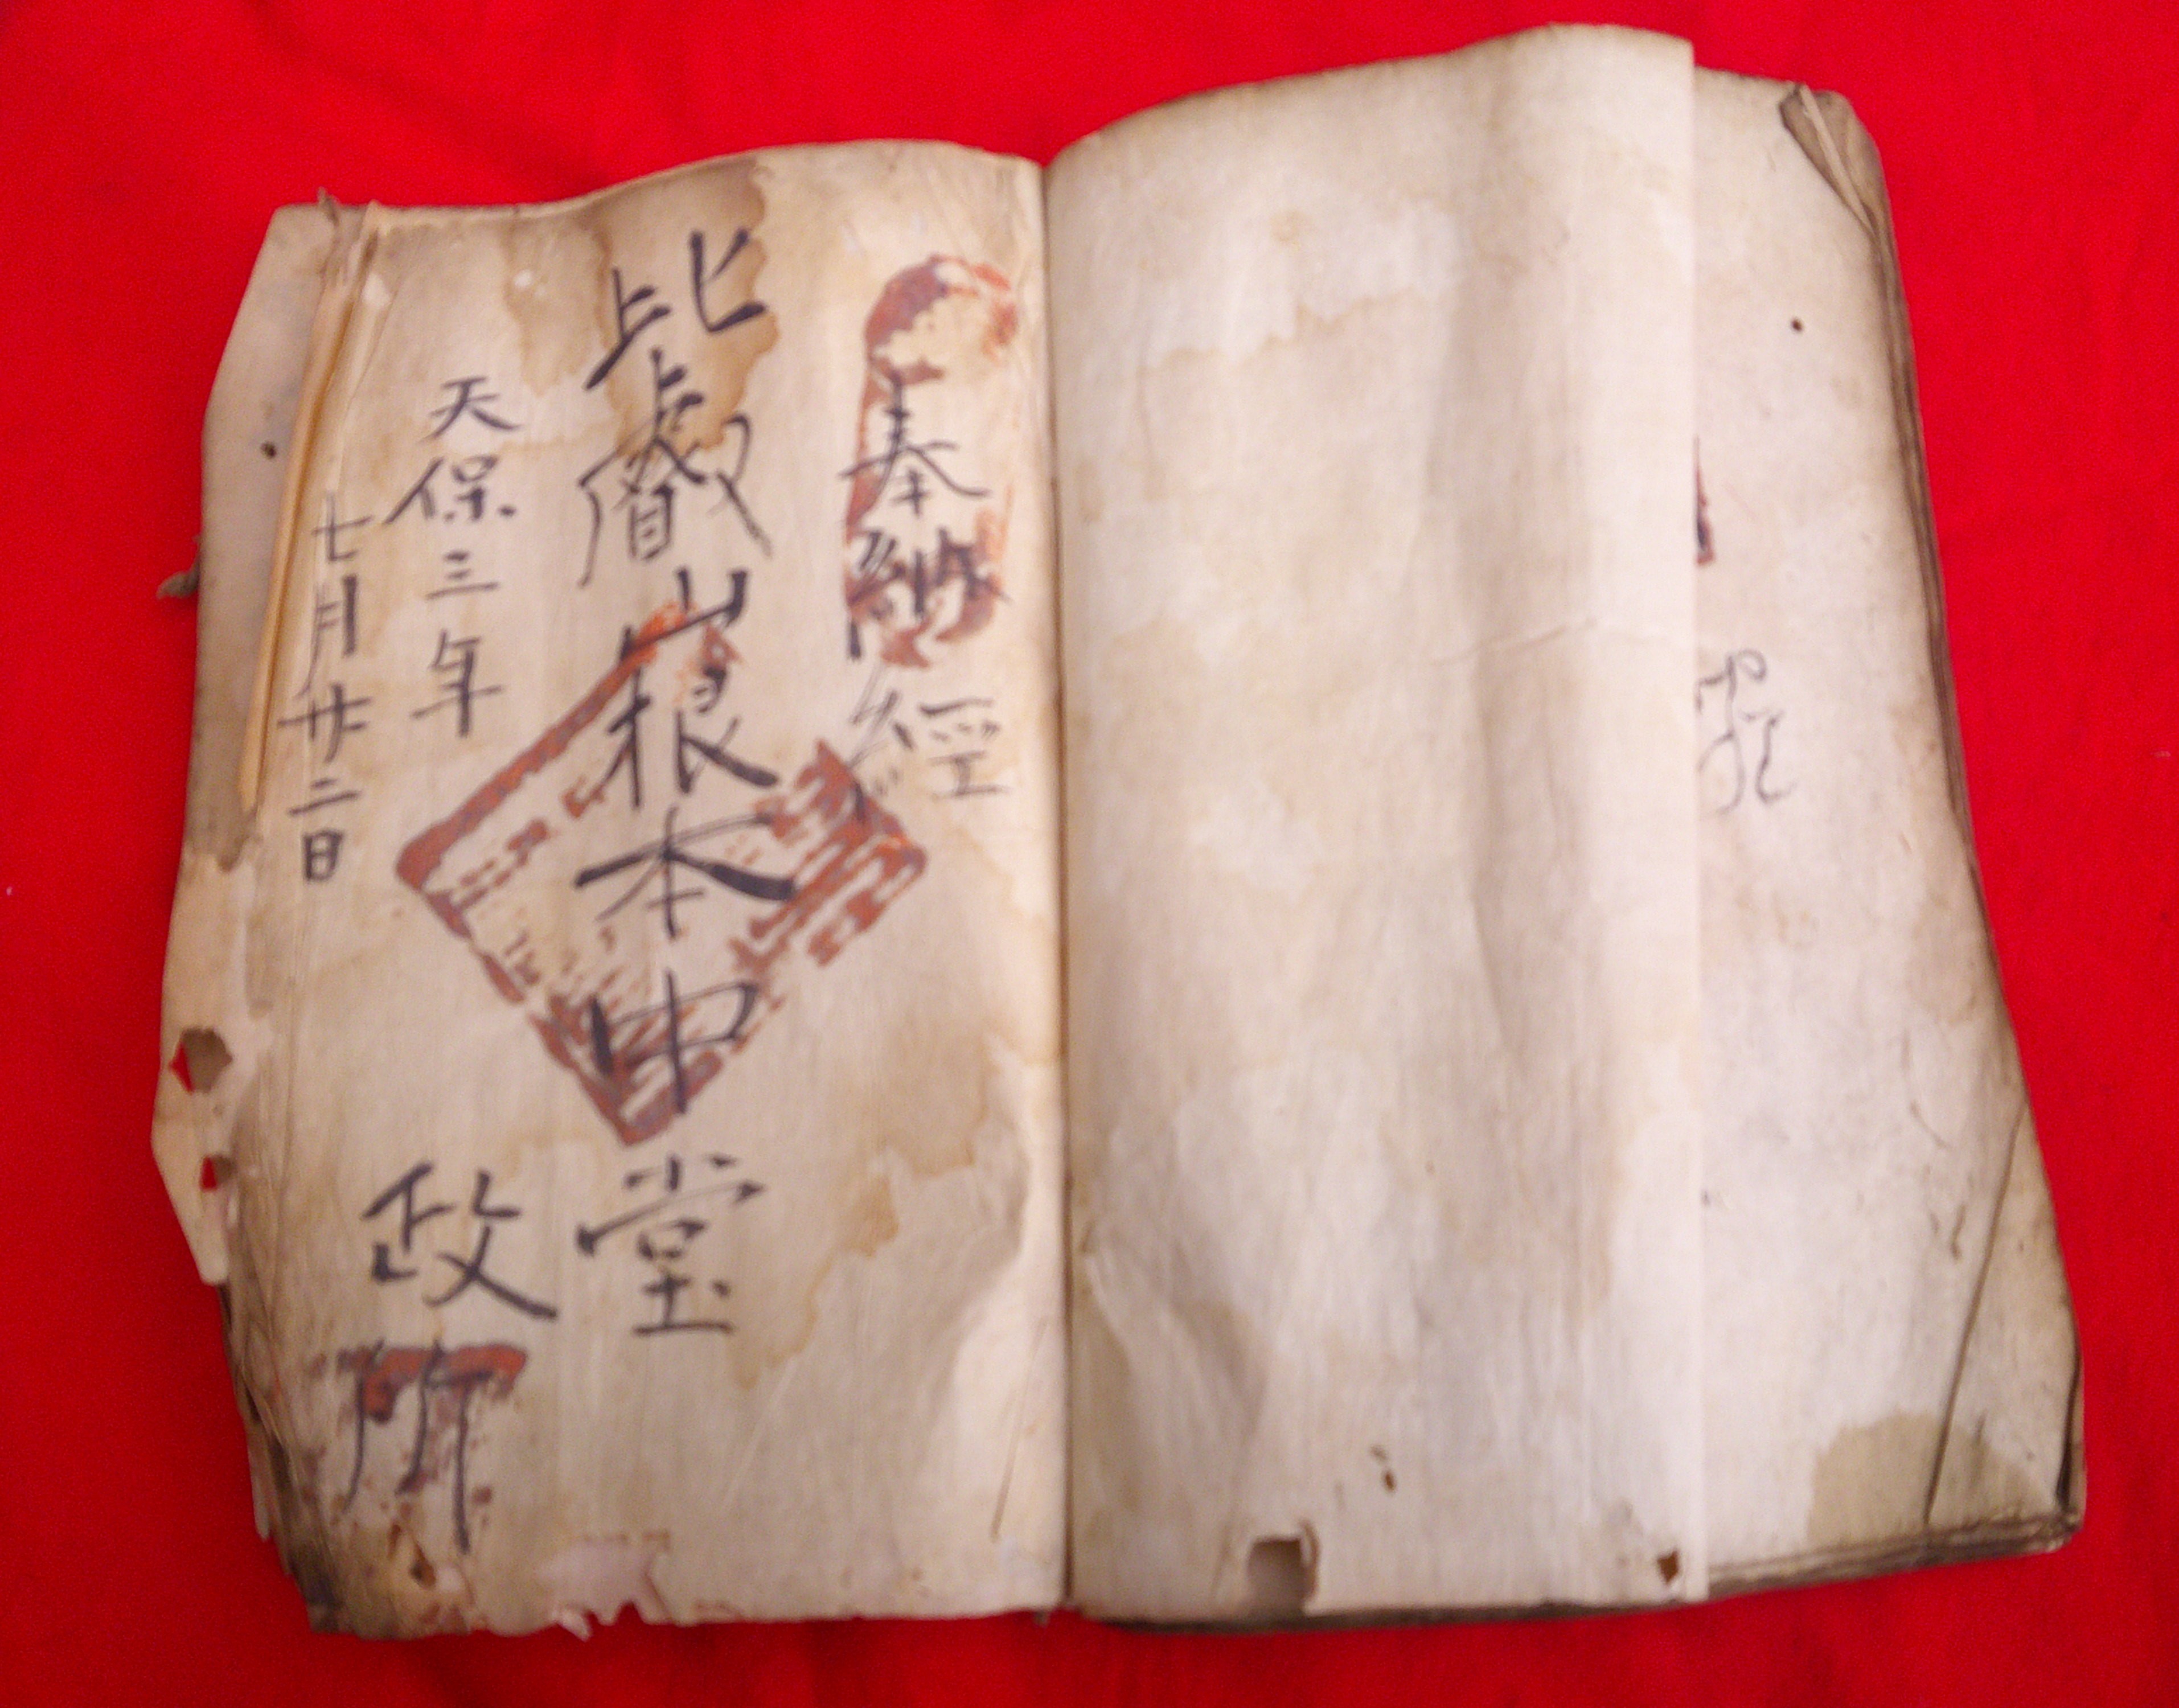 奉納経
比叡山根本中堂
天保三年
七月廿二日
政所